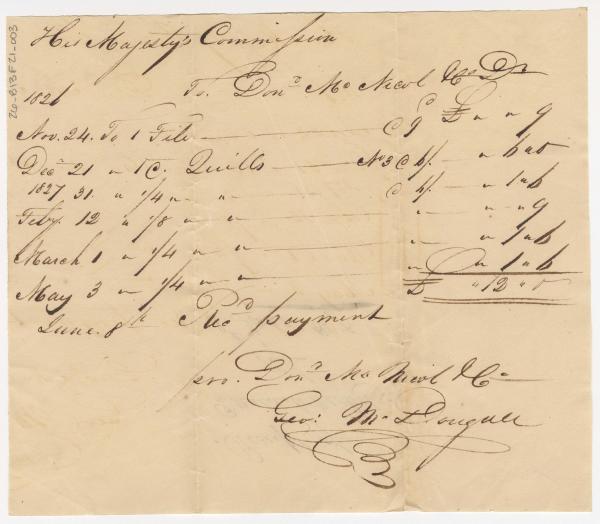 His Majesty's Commission
1826 To Don^d McNicol & Co Dr
Nov. 24. To 1 File @ 9^d £ " " 9
Dec^r 21 " 1 C. Quills No 3 @ 6/. " 6 " 0
" 31. " 1/4 " " @ 6/. " 1 " 6
1827
Feby. 12 " 1/8 " " " " " 9
March 1 " 1/4 " " " " 1 " 6
May 3 " 1/4 " " " " 1 " 6
£ " 12 " 0
June 8^th Rec^d payment
pro. Don^d McNicol & Co
Geo: McDougall
26-B13F21-003